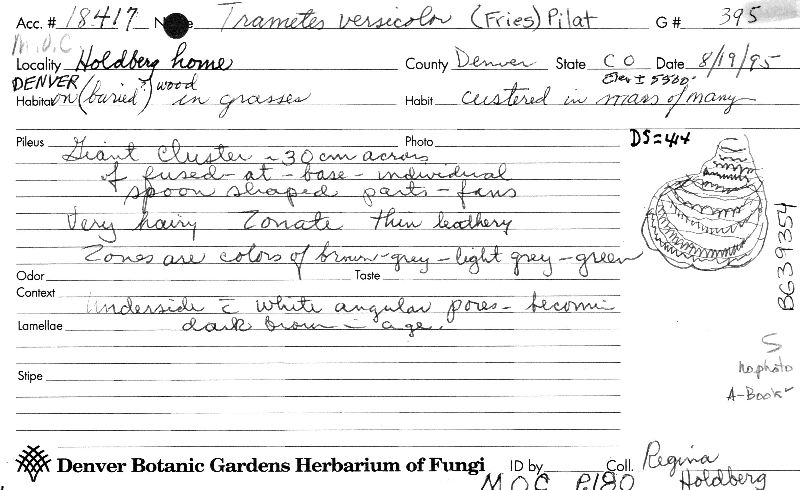 Acc. # 18417 Name Trametes versicolor (Fries) Pilat G # 395
M.O.C.
Locality Holdberg home County Denver State CO Date 8/19/95
DENVER Elev ± 5300'
Habitat on (buried?) wood in grasses Habit custered in mass of many
Pileus Photo DS=414
Giant Cluster ~30cm across
of fused-at-base-individual
spoon shaped parts - fans
Very hairy Zonate thin leathery
Zones are colors of brown-grey-light grey-green
Odor Taste
Context
Underside c̄ white angular pores - becomin
Lamellae dark brown c̄ age.
Stipe
BG39354
S
no photo
A-Book
Denver Botanic Gardens Herbarium of Fungi ID by M.O.C. P.180 Coll. Regina
Holdberg